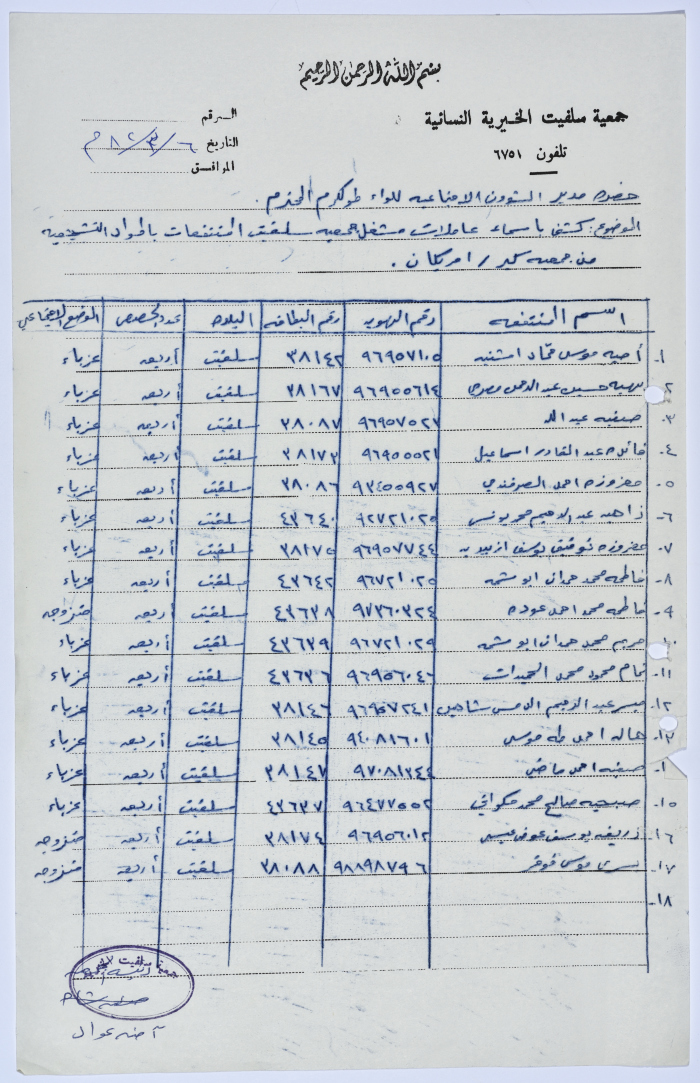 بسم الله الرحمن الرحيم
جمعية سلفيت الخيرية النسائية
تلفون ٦٧٥١
الرقم
التاريخ ٦/٣/٨٢م
الموافق
حضرة مدير الشؤون الاجتماعيه للواء طولكرم المحترم.
الموضوع: كشف باسماء عاملات مشغل جمعيه سلفيت المنتفعات بالمواد التشجيعيه
من جمعيه كير / امريكان.
اسم المنتفعه رقم الهويه رقم البطاقه البلده عدد الحصص الوضع الاجتماعي
١- موسى اشتيه ٩٦٩٥٧١٠٥ ٣٨١٤٢ سلفيت أربعه عزباء
٢- حسين عبد الرحمن ٩٦٩٥٥٦١٤ ٣٨١٦٧ سلفيت أربعه عزباء
٣- صفيه عبد الله ٩٦٩٥٧٥٢٣ ٣٨٠٨٧ سلفيت أربعه عزباء
٤- عبد القادر اسماعيل ٩٦٩٥٥٥٢١ ٣٨١٧٣ سلفيت أربعه عزباء
٥- احمد ٩٣٤٥٥٩٢٧ ٣٨٠٨٦ سلفيت أربعه عزباء
٦- عبد الرحيم يونس ٩٢٧٢١٠٢٥ ٤٣٦٤٠ سلفيت أربعه عزباء
٧- توفيق يوسف ٩٦٩٥٧٧٤٤ ٣٨١٧٥ سلفيت أربعه عزباء
٨- فاطمه محمد حمدان ابو شمه ٩٦٧٢١٠٢٥ ٤٣٦٤٢ سلفيت أربعه عزباء
٩- فاطمه محمد احمد عوده ٩٧٣٦٠٣٢٤ ٤٣٦٣٨ سلفيت أربعه متزوجه
١٠- مريم محمد حمدان ابو شمه ٩٦٧٢١٠٢٩ ٤٣٦٣٩ سلفيت أربعه عزباء
١١- تمام محمود محمد ٩٦٩٥٦٠٤٦ ٤٣٦٣٦ سلفيت أربعه عزباء
١٢- عبد الرحيم شاهين ٩٦٩٥٧٢٤١ ٣٨١٤٦ سلفيت أربعه عزباء
١٣- هاله احمد طه موسى ٩٤٠٨١٦٠١ ٣٨١٤٥ سلفيت أربعه عزباء
١- صفيه احمد ماضي ٩٧٠٨١٣٤٤ ٣٨١٤٧ سلفيت أربعه عزباء
١٥- صبحيه صالح محمد ٩٦٤٧٧٥٥٢ ٤٣٦٣٧ سلفيت أربعه عزباء
١٦- ظريفه يوسف عيسى ٩٦٩٥٦٠١٢ ٣٨١٧٤ سلفيت أربعه متزوجه
١٧- يسرى موسى ٩٨٨٩٨٧٩٦ ٣٨٠٨٨ سلفيت أربعه متزوجه
١٨-
جمعية سلفيت الخيرية